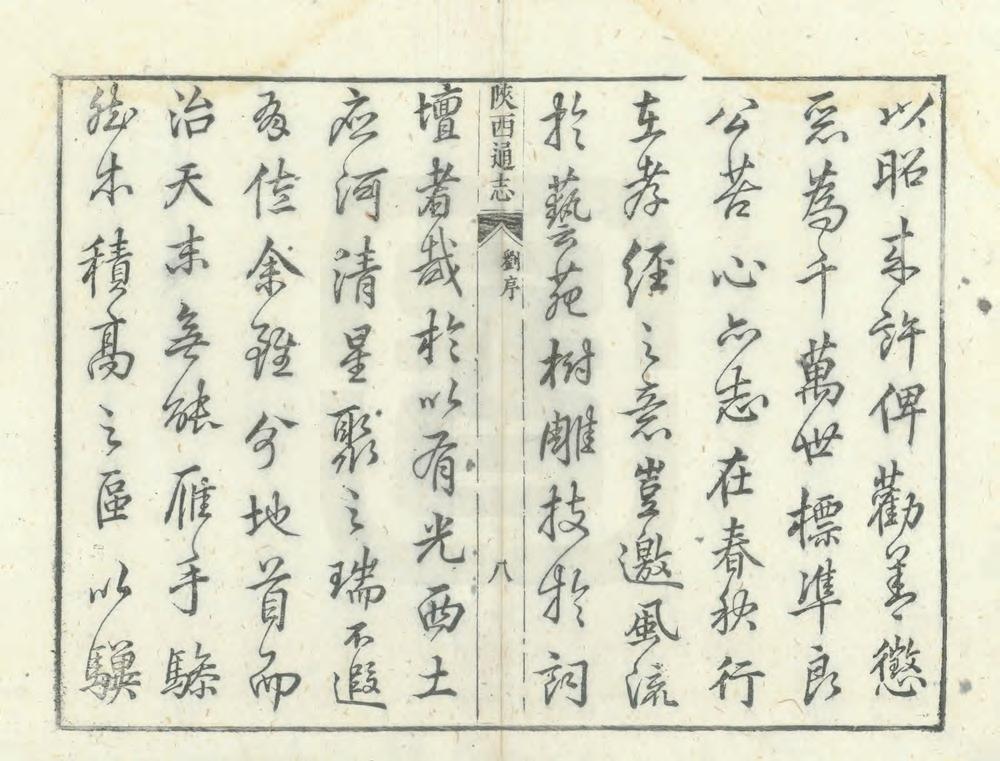 以昭来許俾勸善懲
惡為千萬世標準良
公苦心亦志在春秋行
在孝經之意豈邀風流
於藝苑樹雕技於詞
陝西通志
劉序
八
壇者哉於以有光西土
应河清星聚之瑞不遐
有佐余雖分地首而
治天末無能雁手
然木積高之區以